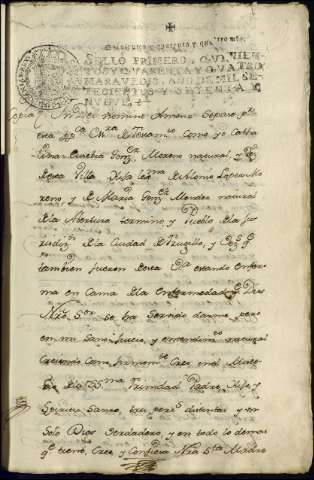 SELLO PRIMERO, QVINIEN
TOS Y QVARENTA Y QVATRO
MARAVEDIS, AÑO DE MIL SE
TECIENTOS Y SETENTA Y
NUEVE
Copia In Dei nomine Amen Sepase pr
esta pp.ca Ess.ra de Testam.to Como yo Catha
lina Eusebia Gonz.z Moreno natural, y
desta Villa Hija lex.ma de Antonio Lopez Mo
reno y de Maria Gonz.z Mendez natural
de la Herrera termino y Pueblo de la Ju
risdiz.n de la Ciudad de Truxillo, y
tambien fueron desta estando enfer
ma en Cama de la Enfermedad q.e Dios
Nro S.or se ha servido darme, pero
en mi Sano Juicio, y entendim.to natural
Creyendo Como firmem.te Creo en el Miste
rio de la SS.ma Trinidad Padre, Hijo y
Spiritu Santo, tres pers.s distintas y un
Solo Dios Verdadero, y en todo lo demas
q.e tiene, Cree y Confiesa Nra S.ta Madre